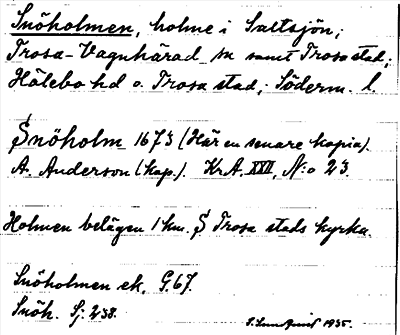 Snöholmen, holme i Saltsjön;
Trosa-Vagnhärad sn samt Trosa stad;
Hölebo hd o. Trosa stad; Söderm. l.
Snöholm 1673 (Här en senare kopia).
A. Anderson (kap.). KrA. XXII, N:o 23.
Holmen belägen 1 km. S Trosa stads kyrka.
Snöholmen ek. G.67.
Snöh. Sj: 238.
1935.